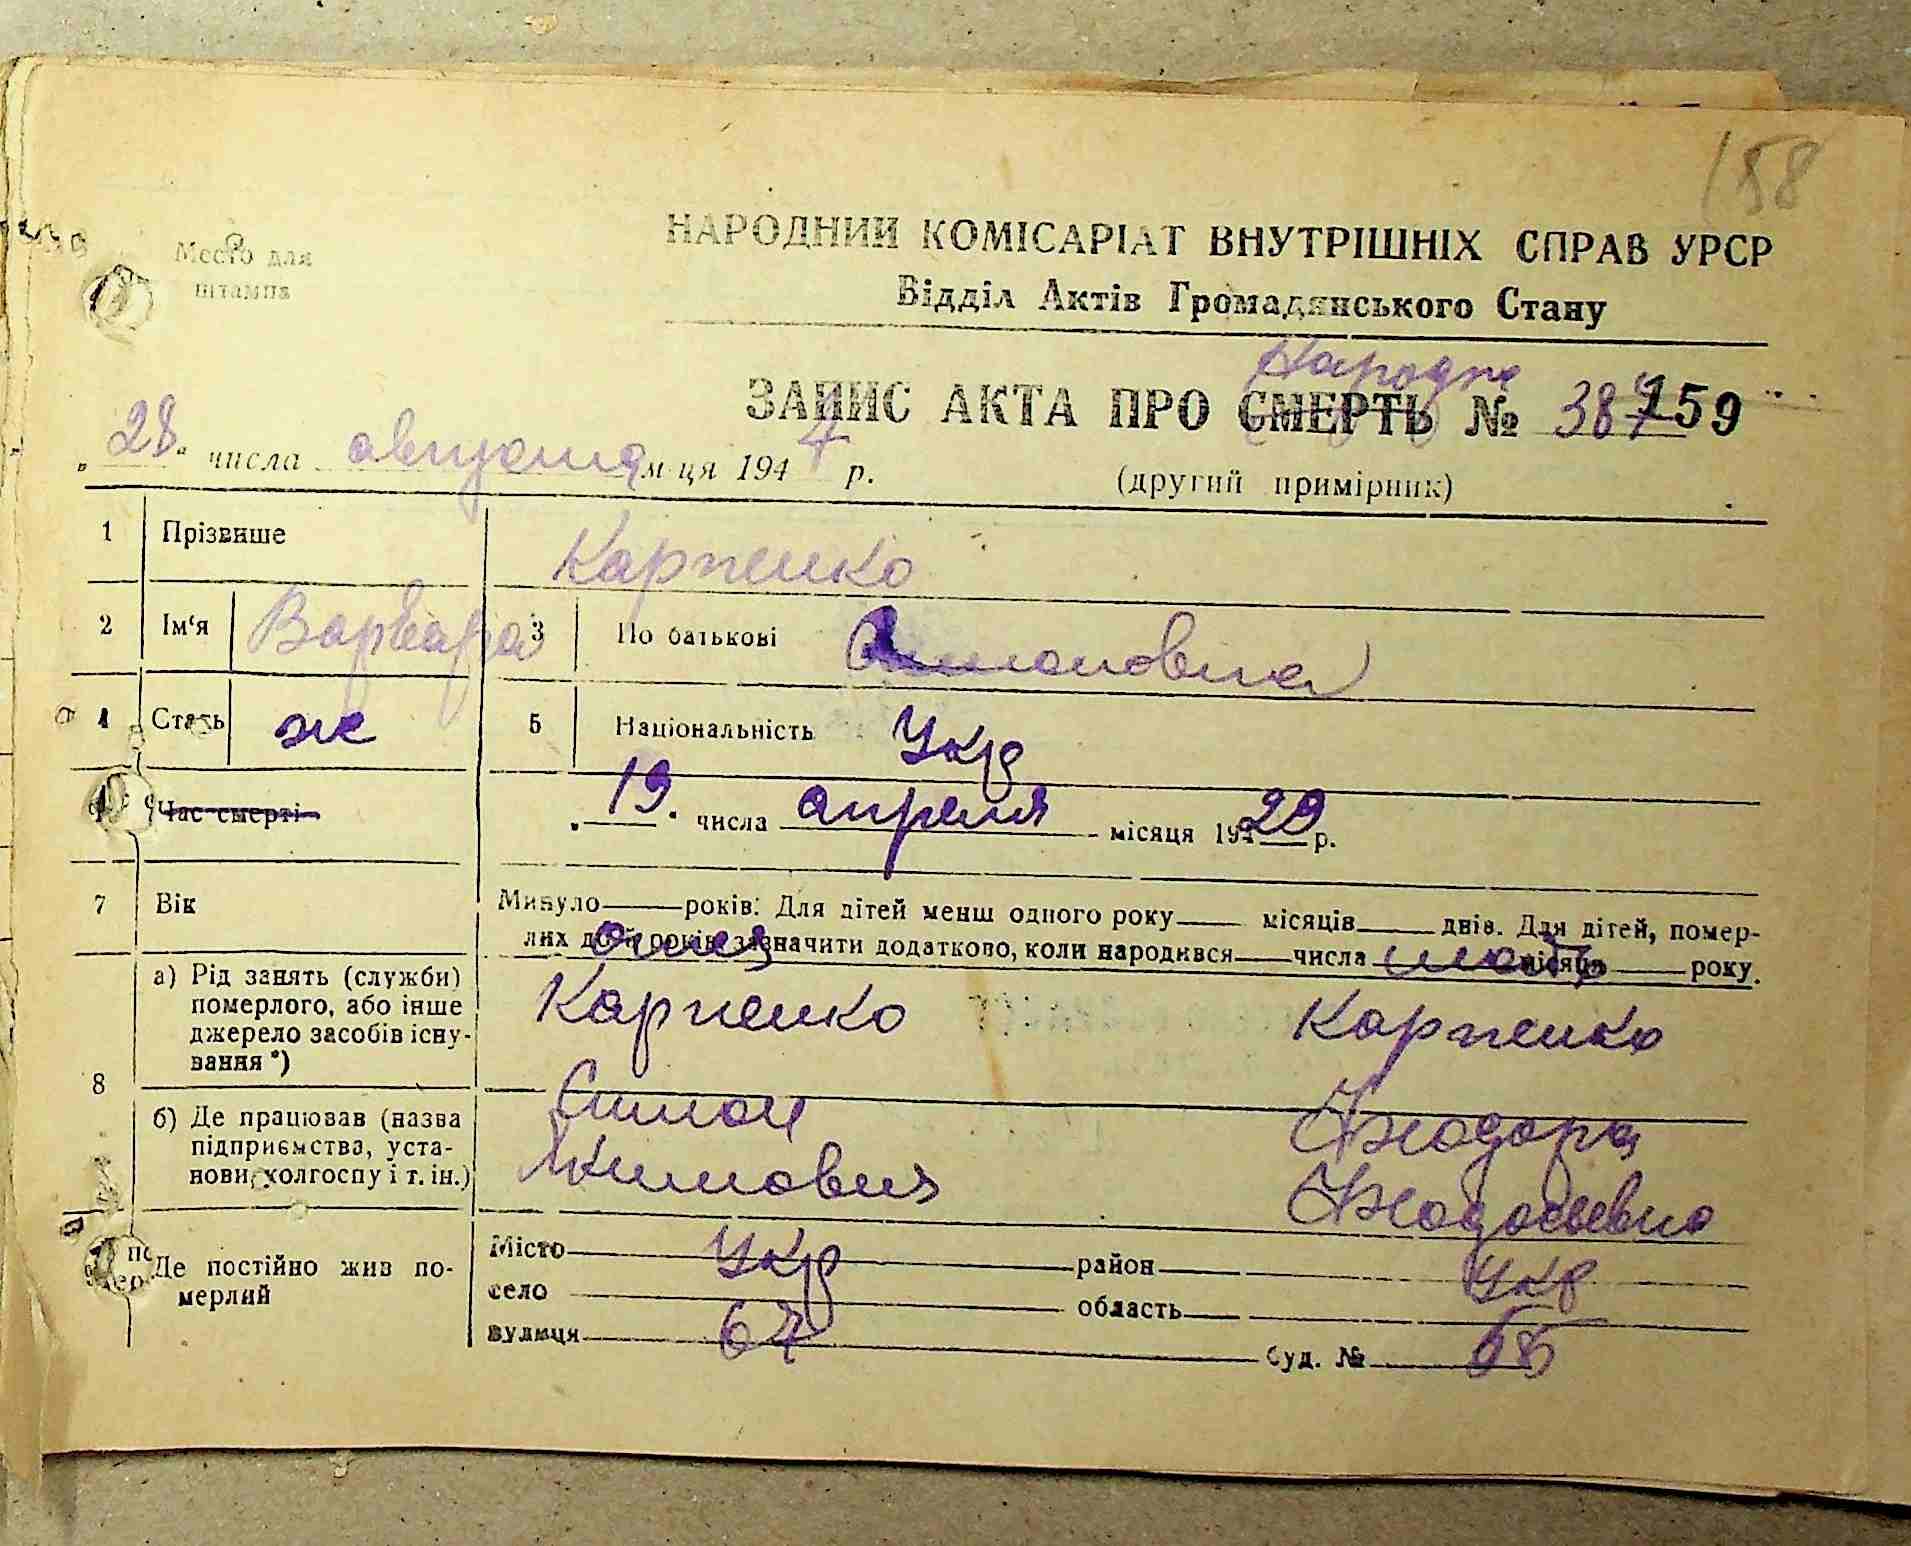 158
Место для
штампа
НАРОДНИЙ КОМІСАРІАТ ВНУТРІШНІХ СПРАВ УРСР
Відділ Актів Громадянського Стану
Народж
ЗАПИС АКТА ПРО СМЕРТЬ № 387 159
„28“ числа августа м-ця 1944 р. (другий примірник)
1 Прізвище Карпенко
2 Ім‘я Варвара 3 По батькові
4 Стать ж 5 Національність Укр
Час смерті „19“ числа апреля місяця 1929 р.
7 Вік Минуло років: Для дітей менш одного року місяців днів. Для дітей, помер-
лих до років зазначити додатково, коли народився числа місяця року.
отец мать
8 а) Рід занять (служби) померлого, або інше джерело засобів існу-вання *) Карпенко Карпенко
Симон
б) Де працював (назва підприємства, уста-нови, холгоспу і т. ін.) Якимович
Де постійно жив по-мерлий Місто Укр район Укр
село область
вулиця 67 буд. №